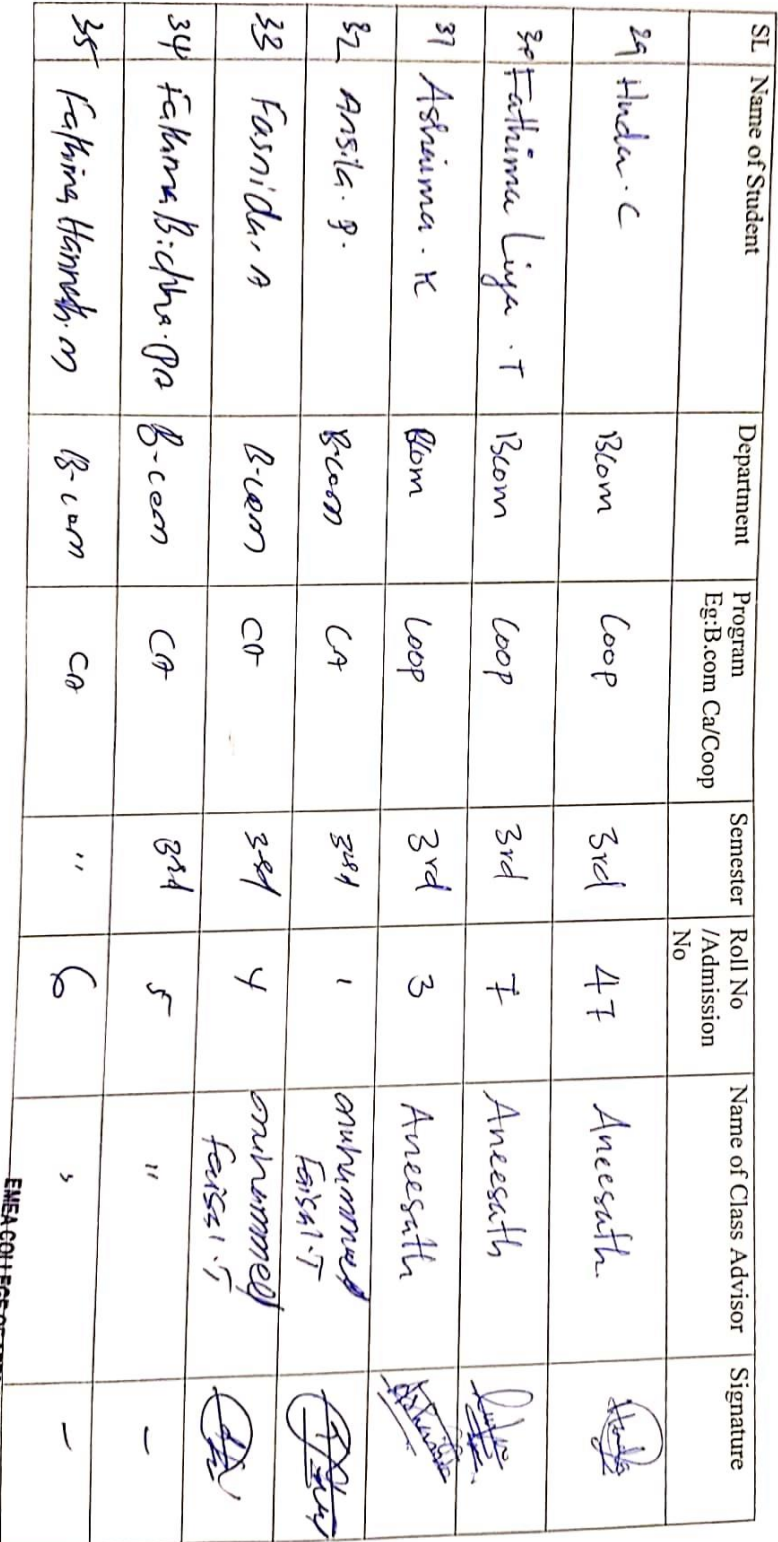 SL Name of Student Department Program Eg:B.com Ca/Coop Semester Roll No /Admission No Name of Class Advisor Signature
29 Huda.C Bcom Coop 3rd 47 Aneesath. Huda
30 Fathima Liya.T Bcom Coop 3rd 7 Aneesath
31 Ashima.K Bcom Coop 3rd 3 Aneesath
32 Ansila.P. B-com CA 3rd 1 muhammed Faisal.T
33 Fasnida.A B-com CA 3rd 4 muhammed faisal.T
34 Fathima Bidha.PA B-com CA 3rd 5 " -
35 Fathima Hannath.M B-com CA " 6 , -
EMEA COLLEGE OF